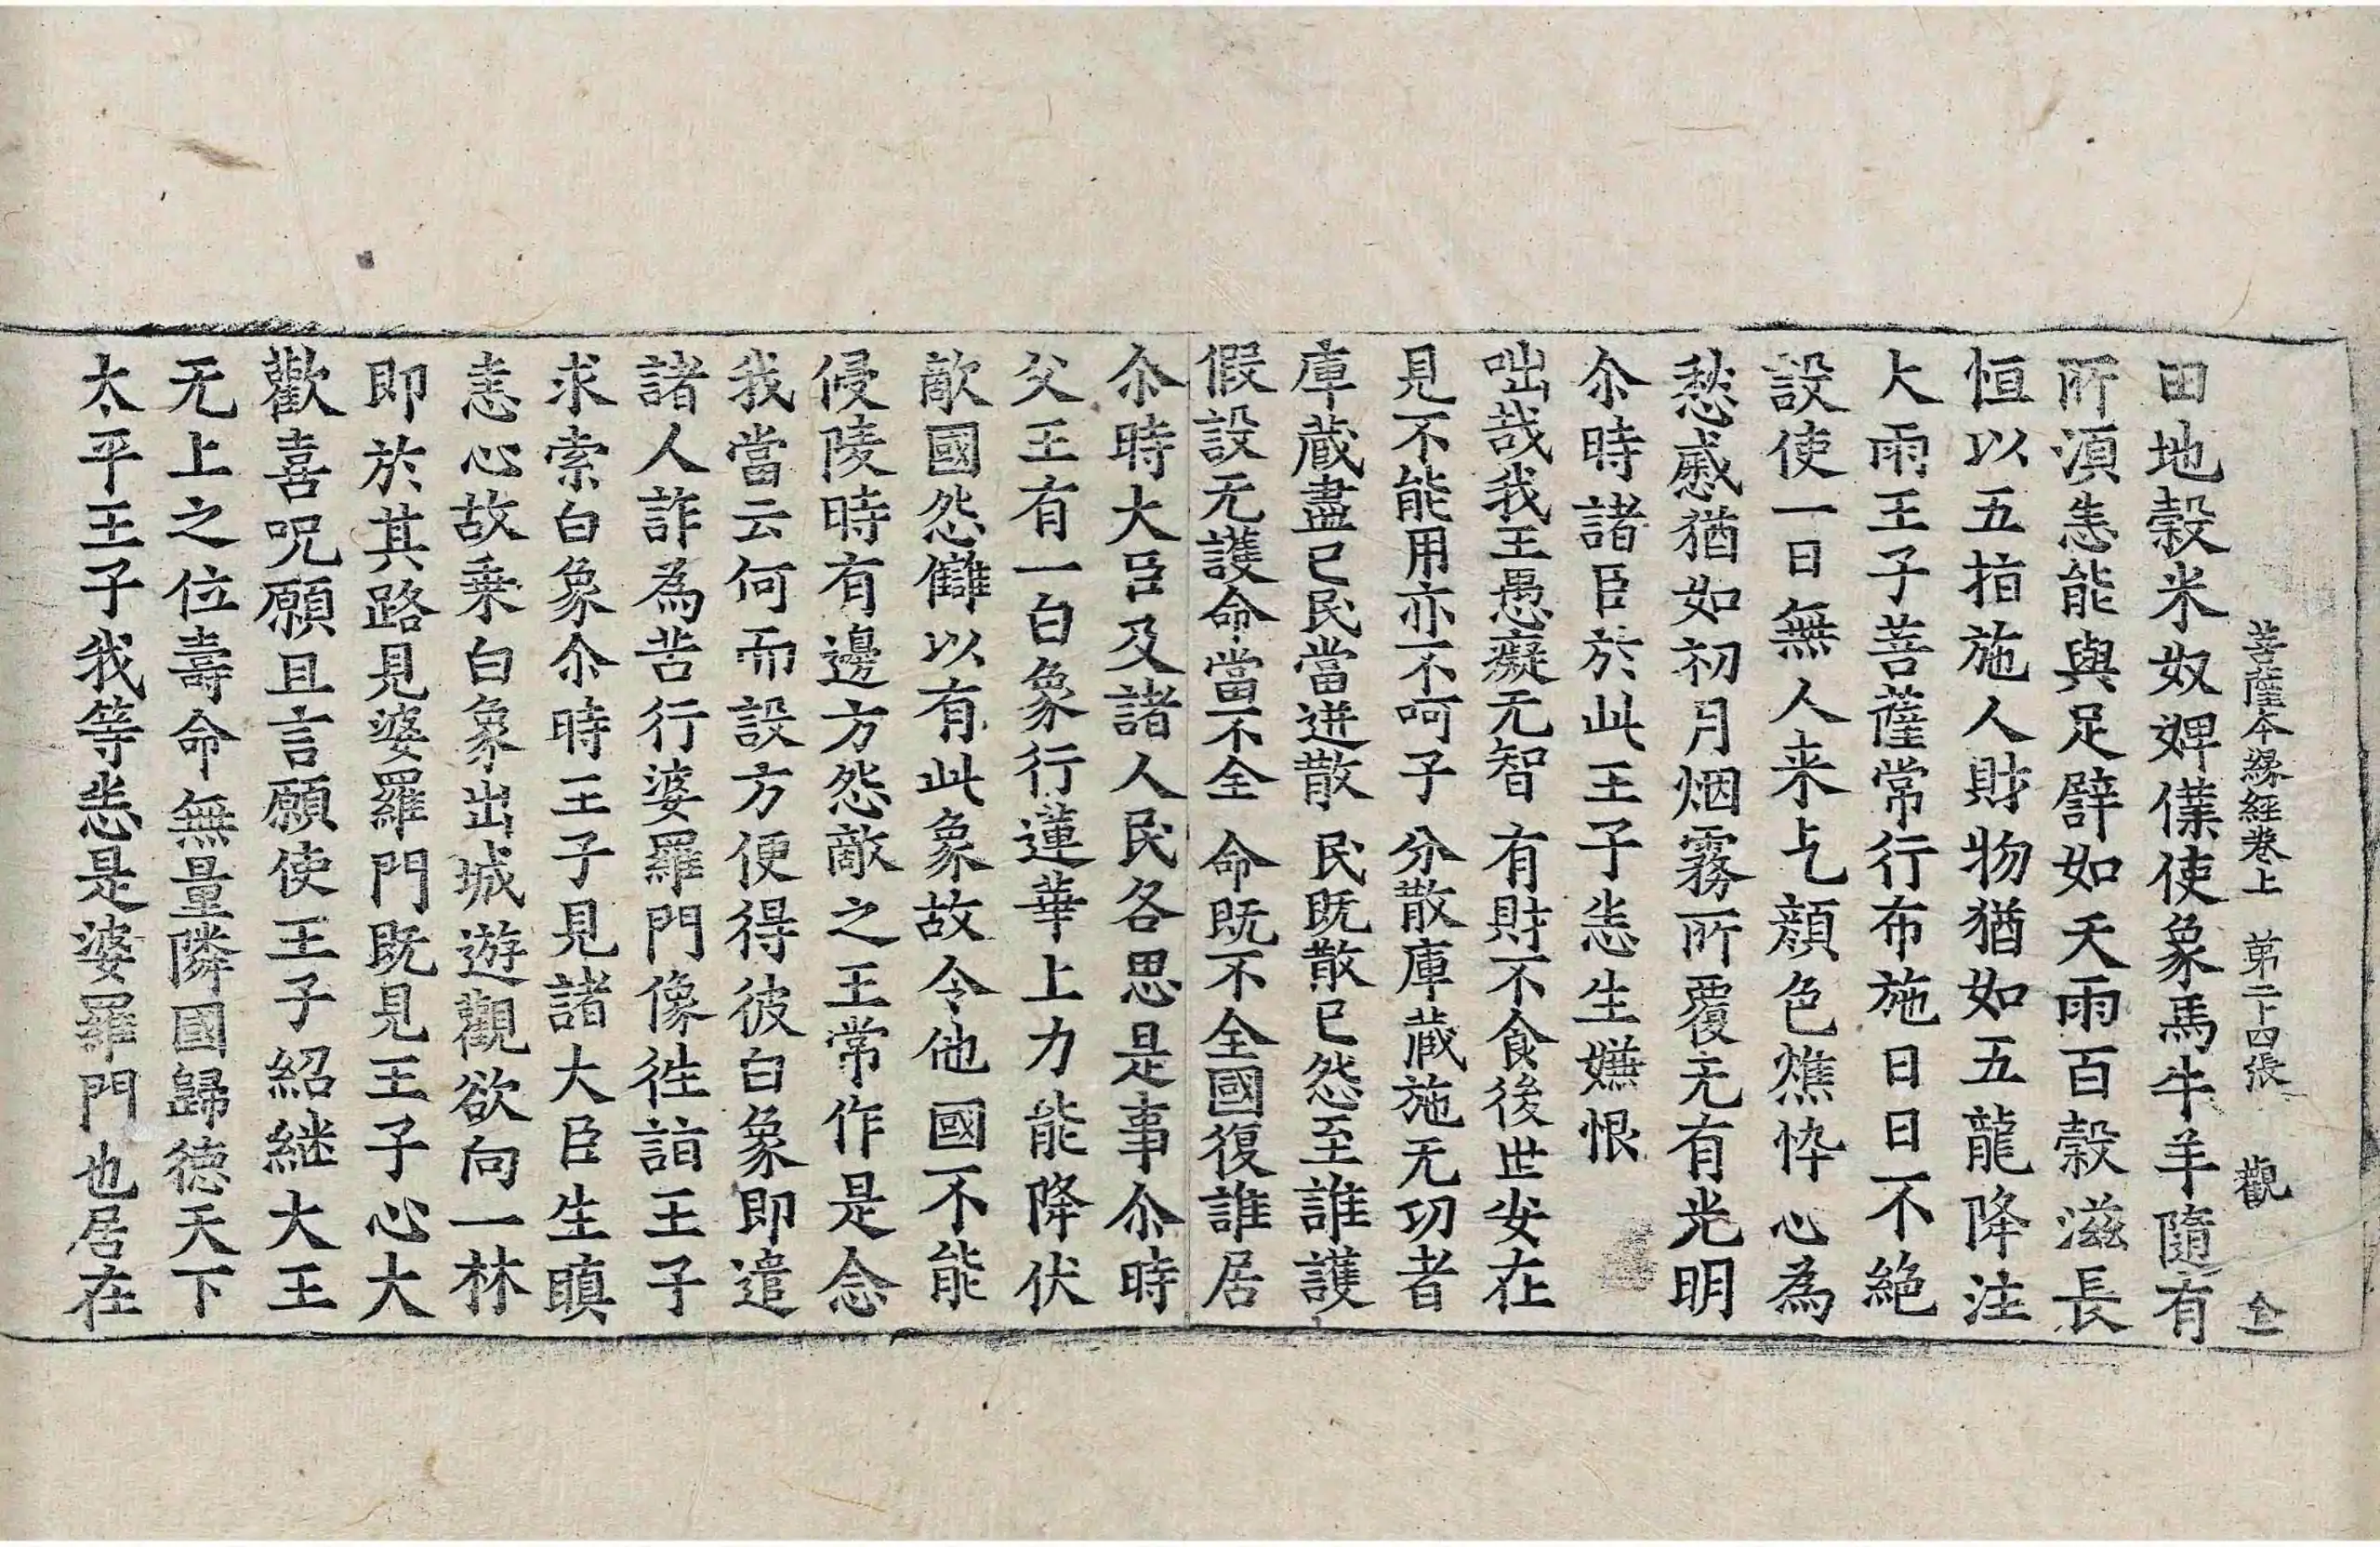 菩薩本縁經卷上　第二十四張　觀　仝
田地穀米奴婢僕使象馬牛羊隨有
所湏恙能與足譬如天雨百穀滋長
恒以五指施人財物猶如五龍降注
大雨王子菩薩常行布施日日不絶
設使一日無人来乞顔色燋悴心為
愁慼猶如初月烟霧所覆无有光明
尒時諸臣於此王子恙生嫌恨
咄哉我王愚癡无智　有財不食後世安在
見不能用亦不呵子　分散庫蔵施无功者
庫蔵盡已民當迸散　民既散已怨至誰護
假設无護命當不全　命既不全國復誰居
尒時大臣及諸人民各思是事尒時
父王有一白象行蓮華上力能降伏
敵國怨讎以有此象故令他國不能
侵陵時有邊方怨敵之王常作是念
我當云何而設方便得彼白象即遣
諸人詐為苦行婆羅門像徃詣王子
求索白象尒時王子見諸大臣生瞋
恚心故乗白象出城遊觀欲向一林
即於其路見婆羅門既見王子心大
歡喜呪願且言願使王子紹継大王
无上之位壽命無量隣國歸德天下
太平王子我等恙是婆羅門也居在